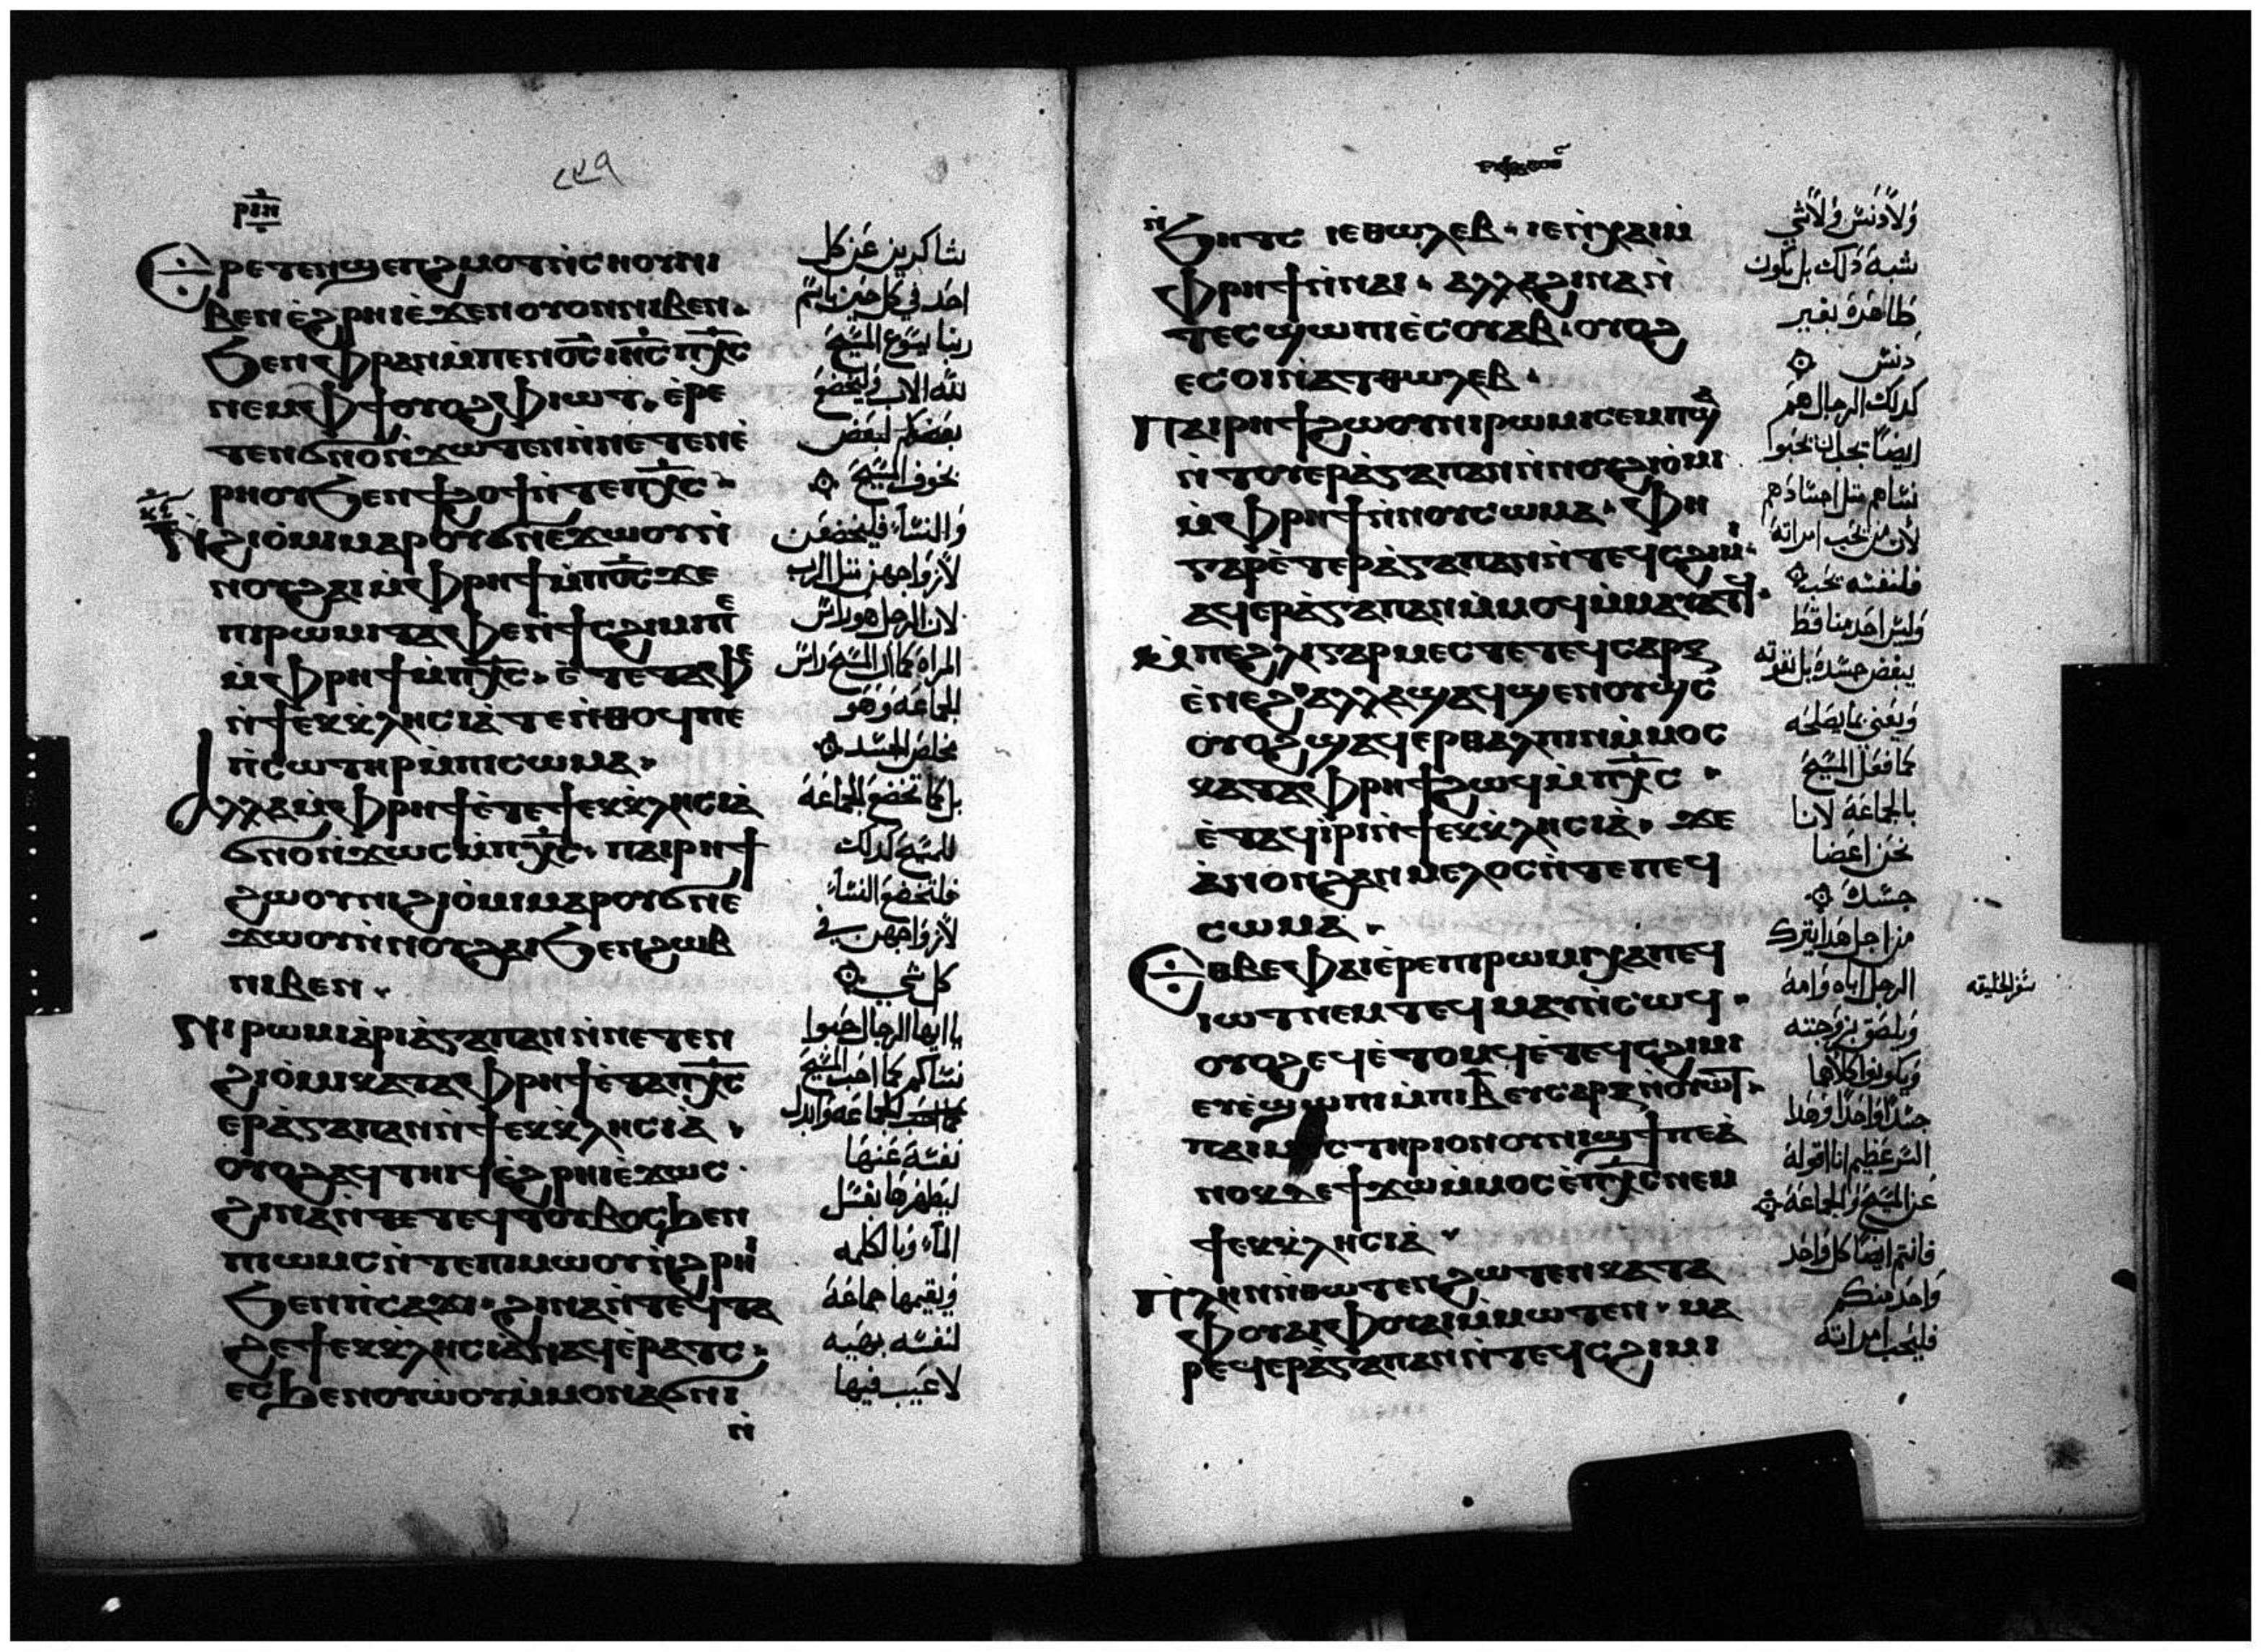 ⲣⲓⲏ
ⲉⲣⲉⲧⲉⲛϣⲉⲡϩⲙⲟⲧⲛ̀ⲥⲏⲟⲩⲛⲓ
ⲃⲉⲛⲉ̀ϩⲣⲏⲓⲉ̀ϫⲉⲛⲟⲩⲟⲛⲛⲓⲃⲉⲛ
ϧⲉⲛⲫⲣⲁⲛⲙ̀ⲡⲉⲛⲟ̅ⲥ̅ⲓⲏ̅ⲥ̅ⲡⲭ̅ⲥ̅
ⲛⲉⲙⲫϯⲟⲩⲟϩⲫⲓⲱⲧ ⲉ̀ⲣⲉ
ⲧⲉⲛϭⲛⲟⲛ̀ϫⲱⲧⲉⲛⲛ̀ⲛⲉⲧⲉⲛⲉ̀
ⲣⲏⲟⲩϧⲉⲛϯϩⲟϯⲛ̀ⲧⲉⲡⲭ̅ⲥ̅
ⲛⲓϩⲓⲟ̀ⲙⲓⲙⲁⲣⲟⲩϭⲛⲉϫⲱⲟⲩⲛ̀
ⲛⲟⲩϩⲁⲓⲙ̀ⲫⲣⲏϯⲙ̀ⲡⲟ̅ⲥ̅ϫⲉ
ⲡⲓⲣⲱⲙⲓⲧⲁⲫⲉⲛ̀ϯⲥϩⲓⲙⲓⲡⲉ
ⲙ̀ⲫⲣⲏϯⲙ̀ⲡⲭ̅ⲥ̅ ⲉ̀ⲧⲉⲧⲁⲫⲉ
ⲛ̀ϯⲉⲕⲕⲗⲏⲥⲓⲁ̀ⲧⲉⲛ̀ⲑⲟϥⲡⲉ
ⲡ̀ⲥⲱⲧⲏⲣⲙ̀ⲡⲓⲥⲱⲙⲁ
ⲁⲗⲗⲁⲙ̀ⲫⲣⲏϯⲉ̀ⲧⲉϯⲉⲕⲕⲗⲏⲥⲓⲁ̀
ϭⲛⲟⲛ̀ϫⲱⲥⲙ̀ⲡⲭ̅ⲥ̅ ⲡⲁⲓⲣⲏϯ
ϩⲱⲟⲩⲛⲓϩⲓⲟ̀ⲙⲓⲙⲁⲣⲟⲩϭⲛⲉ
ϫⲱⲟⲩⲛ̀ⲛⲟⲩϩⲁⲓϧⲉⲛϩⲱⲃ
ⲛⲓⲃⲉⲛ
ⲛⲓⲣⲱⲙⲓⲁ̀ⲣⲓⲁ̀ⲅⲁⲡⲁⲛⲛ̀ⲛⲉⲧⲉⲛ
ϩⲓⲟ̀ⲙⲓⲕⲁⲧⲁⲫⲣⲏϯⲉ̀ⲧⲁⲡⲭ̅ⲥ̅
ⲉⲣⲁ̀ⲅⲁⲡⲁⲛⲛ̀ϯⲉⲕⲕⲗⲏⲥⲓⲁ̀
ⲟⲩⲟϩⲁϥⲧⲏⲓϥⲉ̀ϩⲣⲏⲓⲉ̀ϫⲱⲥ
ϩⲓⲛⲁⲛ̀ⲧⲉϥⲧⲟⲩⲃⲟⲥϧⲉⲛ
ⲡⲓⲱⲙⲥⲛ̀ⲧⲉⲡⲓⲙⲱⲟⲩⲛ̀ϩⲣⲏⲓ
ϧⲉⲛⲡⲥⲁϫⲓ ϩⲓⲛⲁⲛ̀ⲧⲉϥⲧⲁ
ϩⲉϯⲉⲕⲕⲗⲏⲥⲓⲁ̀ⲛⲁϥⲉ̀ⲣⲁⲧⲥ
ⲉⲥϧⲉⲛⲟⲩⲱ̀ⲟⲩⲙ̀ⲙⲟⲛⲁϭⲛⲓ
ⲛ̀
شاكرين عن كل
احد في كل حين باسم
ربنا يسوع المسيح
لله الاب وليخضع
بعضكم لبعض
بخوف المسيح
والنساء فليخضعن
لازواجهن مثل الرب
لان الرجل هو راس
المراه كما ان المسيح راس
الجماعه وهو
مخلص الجسد
بل كما تخضع الجماعة
للمسيح كذلك
فلتخضع النساء
لازواجهن في
كل شي
يا ايها الرجال احبوا
نساكم كما احب المسيح
الجماعه وابدل
نفسه عنها
ليطهرها بغسل
الماء وبالكلمه
ويقيمها جماعة
لنفسه بهيه
لا عيب فيها
ⲛ̀
ϧⲏⲧⲥ ⲓⲉⲑⲱⲗⲉⲃ ⲓⲉⲛ̀ⲭⲁⲓⲙ̀
ⲫⲣⲏϯⲛ̀ⲛⲁⲓ ⲁⲗⲗⲁϩⲓⲛⲁⲛ̀
ⲧⲉⲥϣⲱⲡⲓⲉ̀ⲥⲟⲩⲁⲃ ⲟⲩⲟϩ
ⲉⲥⲟⲓⲛ̀ⲁⲧⲑⲱⲗⲉⲃ
ⲡⲁⲓⲣⲏϯϩⲱⲟⲩⲛⲓⲣⲱⲙⲓⲥⲉⲙⲡϣⲁ
ⲛ̀ⲧⲟⲩⲉⲣⲁ̀ⲅⲁⲡⲁⲛⲛ̀ⲛⲟⲩϩⲓⲟ̀ⲙⲓ
ⲙ̀ⲫⲣⲏϯⲛ̀ⲛⲟⲩⲥⲱⲙⲁ ⲫⲏ
ⲅⲁⲣⲉ̀ⲧⲉⲣⲁ̀ⲅⲁⲡⲁⲛⲛ̀ⲧⲉϥⲥϩⲓⲙⲓ
ⲁϥⲉⲣⲁ̀ⲅⲁⲡⲁⲛⲙ̀ⲙⲟϥⲙ̀ⲙⲁⲩⲁⲧϥ
ⲙ̀ⲡⲉϩⲗⲓⲅⲁⲣⲙⲉⲥⲧⲉⲧⲉϥⲥⲁⲣⲝ
ⲉ̀ⲛⲉϩ ⲁⲗⲗⲁϣⲁϥϣⲉⲛⲟⲩϣⲥ
ⲟⲩⲟϩϣⲁϥⲉⲣⲑⲁⲗⲡⲓⲛⲙ̀ⲙⲟⲥ
ⲕⲁⲧⲁⲫⲣⲏϯϩⲱϥⲙ̀ⲡⲭ̅ⲥ̅
ⲉ̀ⲧⲁϥⲓⲣⲓⲛ̀ϯⲉⲕⲕⲗⲏⲥⲓⲁ̀ ϫⲉ
ⲁ̀ⲛⲟⲛϩⲁⲛⲙⲉⲗⲟⲥⲛ̀ⲧⲉⲡⲉϥ
ⲥⲱⲙⲁ
ⲉⲑⲃⲉⲫⲁⲓⲉ̀ⲣⲉⲡⲓⲣⲱⲙⲓⲭⲁⲡⲉϥ
ⲓⲱⲧⲛⲉⲙⲧⲉϥⲙⲁⲩⲛ̀ⲥⲱϥ
ⲟⲩⲟϩⲉϥⲉ̀ⲧⲟⲙϥⲉ̀ⲧⲉϥⲥϩⲓⲙⲓ
ⲉⲩⲉ̀ϣⲱⲡⲓⲙ̀ⲡⲓⲃ̅ⲉⲩⲥⲁⲣⲝⲛ̀ⲟⲩⲱⲧ
ⲡⲁⲓⲙⲩⲥⲧⲏⲣⲓⲟⲛⲟⲩⲛⲓϣϯⲡⲉⲁ̀
ⲛⲟⲕⲇⲉϯϫⲱⲙ̀ⲙⲟⲥⲉ̀ⲡⲭ̅ⲥ̅ⲛⲉⲙ
ϯⲉⲕⲕⲗⲏⲥⲓⲁ̀
ⲡⲗⲏⲛⲛ̀ⲑⲱⲧⲉⲛϩⲱⲧⲉⲛⲕⲁⲧⲁ
ⲫⲟⲩⲁⲓⲫⲟⲩⲁⲓⲙ̀ⲙⲱⲧⲉⲛ ⲙⲁ
ⲣⲉϥⲉⲣⲁ̀ⲅⲁⲡⲁⲛⲛ̀ⲧⲉϥⲥϩⲓⲙⲓ
ولا دنس ولا شي
شبه ذلك بل تكون
طاهرة بغير
دنس
كذلك الرجال هم
ايضا يجب ان يحبوا
نساهم مثل اجسادهم
لان من يحب امراته
فلنفسه يحب
وليس احد منا قط
يبغض جسده بل يقوته
ويعني بما يصلحه
كما فعل المسيح
بالجماعة لاننا
نحن اعضا
جسده
من اجل هذا يترك
الرجل اباه وامه
ويلصق بزوجته
ويكونوا كلاهما
جسدا واحدا وهذا
السر عظيم انا اقوله
عن المسيح والجماعة
فانتم ايضا كل واحد
واحد منكم
فليحب امراته
سفر الخليقه